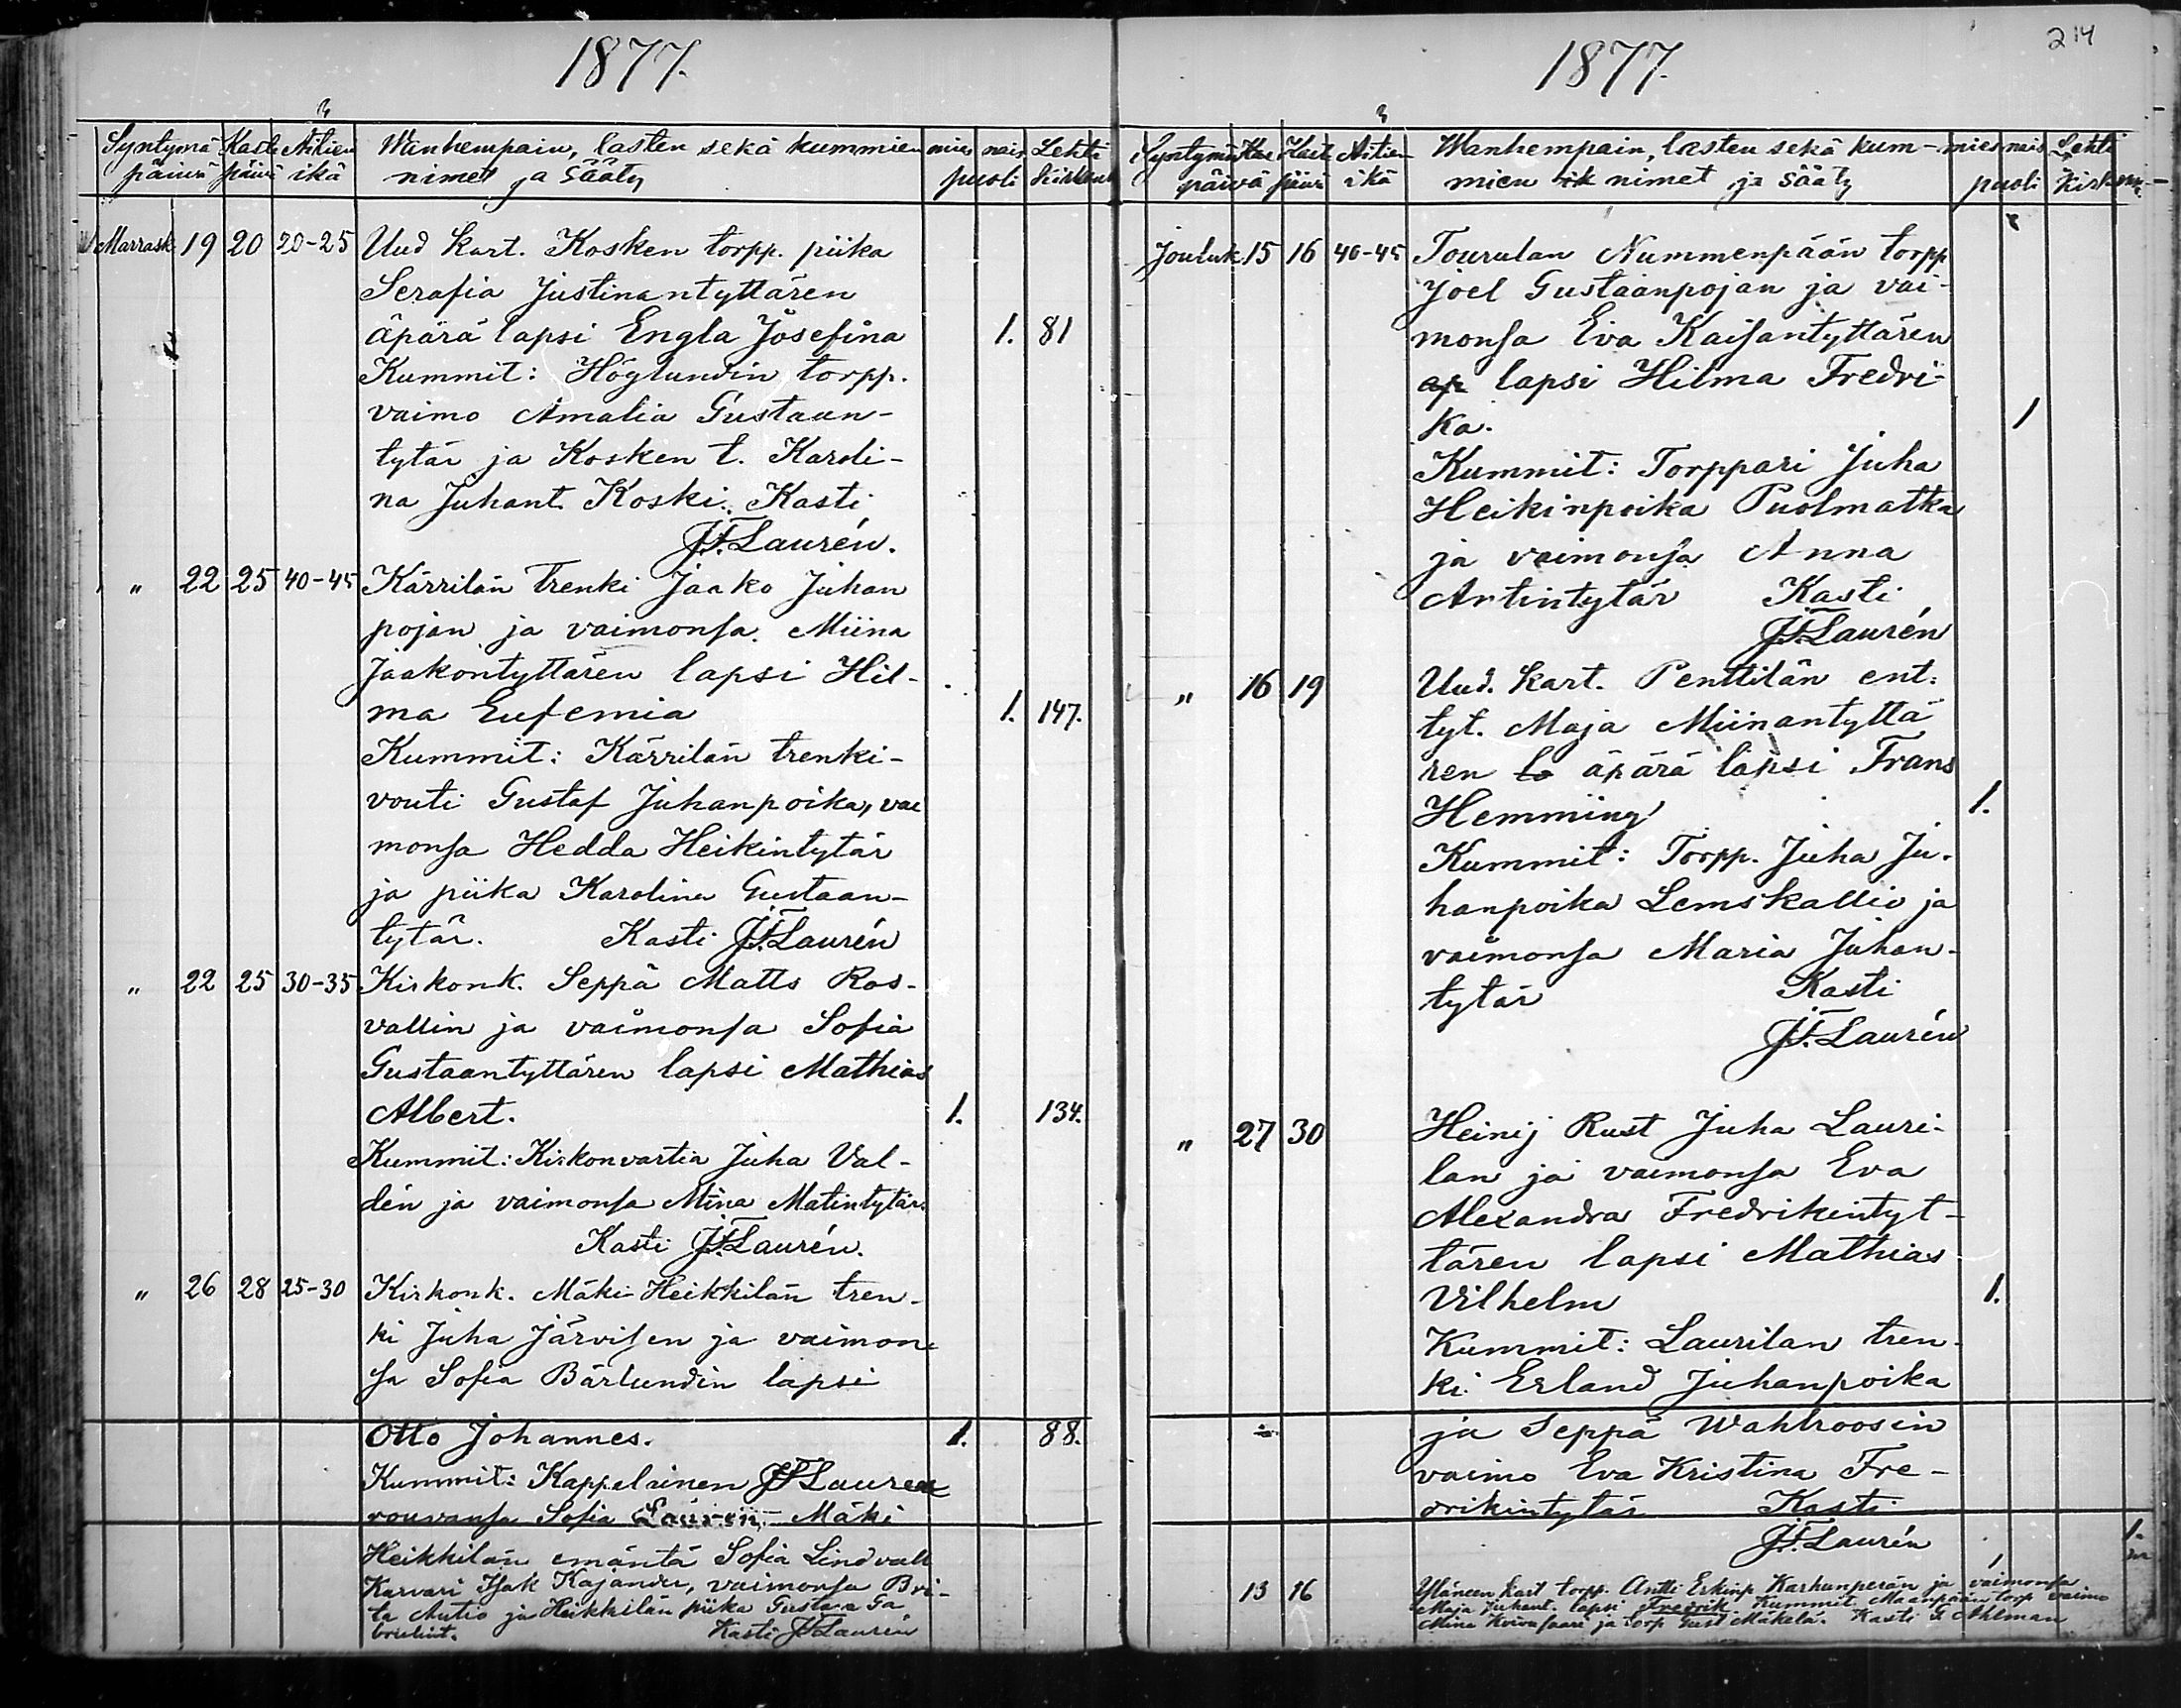 1877.
Syntymä Kaste Äitien Wanhempain, lasten sekä kummien mies nais Lehti
päivä päivä ikä nimet ja sääty puoli kirkonk
Marrask. 19 20 20-25 Uud kart. Kosken torpp. piika
Serafia Justinantyttären
äpärä lapsi Engla Josefina 1. 81
Kummit: Höglundin torpp.
vaimo Amalia Gustaan-
tytär ja Kosken t. Karoli-
na Juhant. Koski. Kasti
J.F. Laurén.
" 22 25 40-45 Kärrilän trenki Jaako Juhan
pojan ja vaimonsa Miina
Jaakontyttären lapsi Hil-
ma Eufemia 1. 147.
Kummit: Kärrilän trenki-
vouti Gustaf Juhanpoika, vai
monsa Hedda Heikintytär
ja piika Karolina Gustaan-
tytär. Kasti J.F. Laurén
" 22 25 30-35 Kirkonk. Seppä Matts Ros-
vallin ja vaimonsa Sofia
Gustaantyttären lapsi Mathias
Albert. 1. 134.
Kummit: Kirkonvartia Juha Val-
dén ja vaimonsa Miina Matintytär.
Kasti J.F. Laurén.
" 26 28 25-30 Kirkonk. Mäki-Heikkilän tren-
ki Juha Järvisen ja vaimon-
sa Sofia Bärlundin lapsi
Otto Johannes. 1. 88.
Kummit: Kappelainen J.F. Lauren
rouvansa Sofia Lauren, Mäki
Heikkilän emäntä Sofia Lindvall
Karvari Isak Kajander, vaimonsa Bri-
ta Autio ja Heikkilän piika Gustava Ga
brielint. Kasti J.F. Laurén
214
1877.
Syntymä Kas Kaste Äitien Wanhempain, lasten sekä kum- mies nais Lehti
päivä päivä ikä mien ik nimet ja sääty puoli kirkonk
Jouluk. 15 16 40-45 Tourulan Nummenpään torpp
Joel Gustaanpojan ja vai-
monsa Eva Kaisantyttären
äp lapsi Hilma Fredri-
ka. 1
Kummit: Torppari Juha
Heikinpoika Puolmatka
ja vaimonsa Anna
Antintytär Kasti
J.F. Laurén
" 16 19 Uud. kart. Penttilän ent.
tyt. Maja Miinantyttä
ren la äpärä lapsi Frans
Hemming 1.
Kummit: Torpp. Juha Ju-
hanpoika Lemskallio ja
vaimonsa Maria Juhan-
tytär Kasti
J.F. Laurén
" 27 30 Heinij Rust Juha Lauri-
lan ja vaimonsa Eva
Alexandra Fredrikintyt-
tären lapsi Mathias
Vilhelm 1.
Kummit: Laurilan tren-
ki Erland Juhanpoika
ja Seppä Wahlroosin
vaimo Eva Kristina Fre-
drikintytär Kasti
J.F. Laurén 1.
13 16 Yläneen kart torp. Antti Erkinp Karhunperän ja vaimonsa
Maja Juhant. lapsi Fredrik Kummit Maanpään torp vaimo
Mina Koivusaari ja torp Gust Mäkelä. Kasti F Ahlman